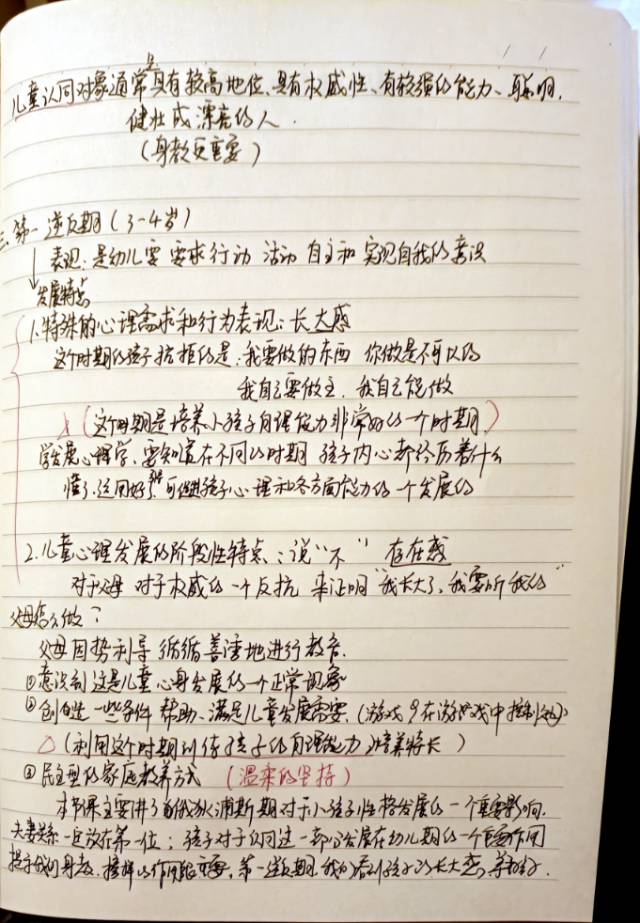 是
儿童认同对象通常具有较高地位、具有权威性、有较强的能力、聪明、
健壮或漂亮的人.
(身教更重要)
三. 第一逆反期(3-4岁)
表现: 是幼儿要 要求行动 活动 自主和 实现自我的意识
发展特点
1.特殊的心理需求和行为表现: 长大感
这个时期的孩子抗拒的是:我要做的东西 你做是不可以的
我自己要做主. 我自己能做
(这个时期是培养小孩子自理能力非常好的一个时期)
学发展心理学、要知道在不同的时期 孩子内心都经历着什么
懂了、运用好了 可促进孩子心理和各方面能力的一个发展的
2.儿童心理发展的阶段性特点:说“不” 存在感
对于父母 对于权威的一个反抗 来证明“我长大了,我要听我的”
父母怎么做?
父母因势利导 循循善诱地进行教育.
①意识到这是儿童心身发展的一个正常现象
②创造一些条件 帮助、满足儿童发展需要.(游戏 在游戏中
△(利用这个时期训练孩子的自理能力 培养特长)
③民主型的家庭教养方式 (温柔的坚持)
本节课主要讲了 期对于小孩子性格发展的一个重要影响.
夫妻关系一定放在第一位; 孩子对于认同这一部分发展在幼儿期的一个重要作用
提示我们身教、榜样的作用很重要, 第一逆反期.我们看到孩子的长大感、